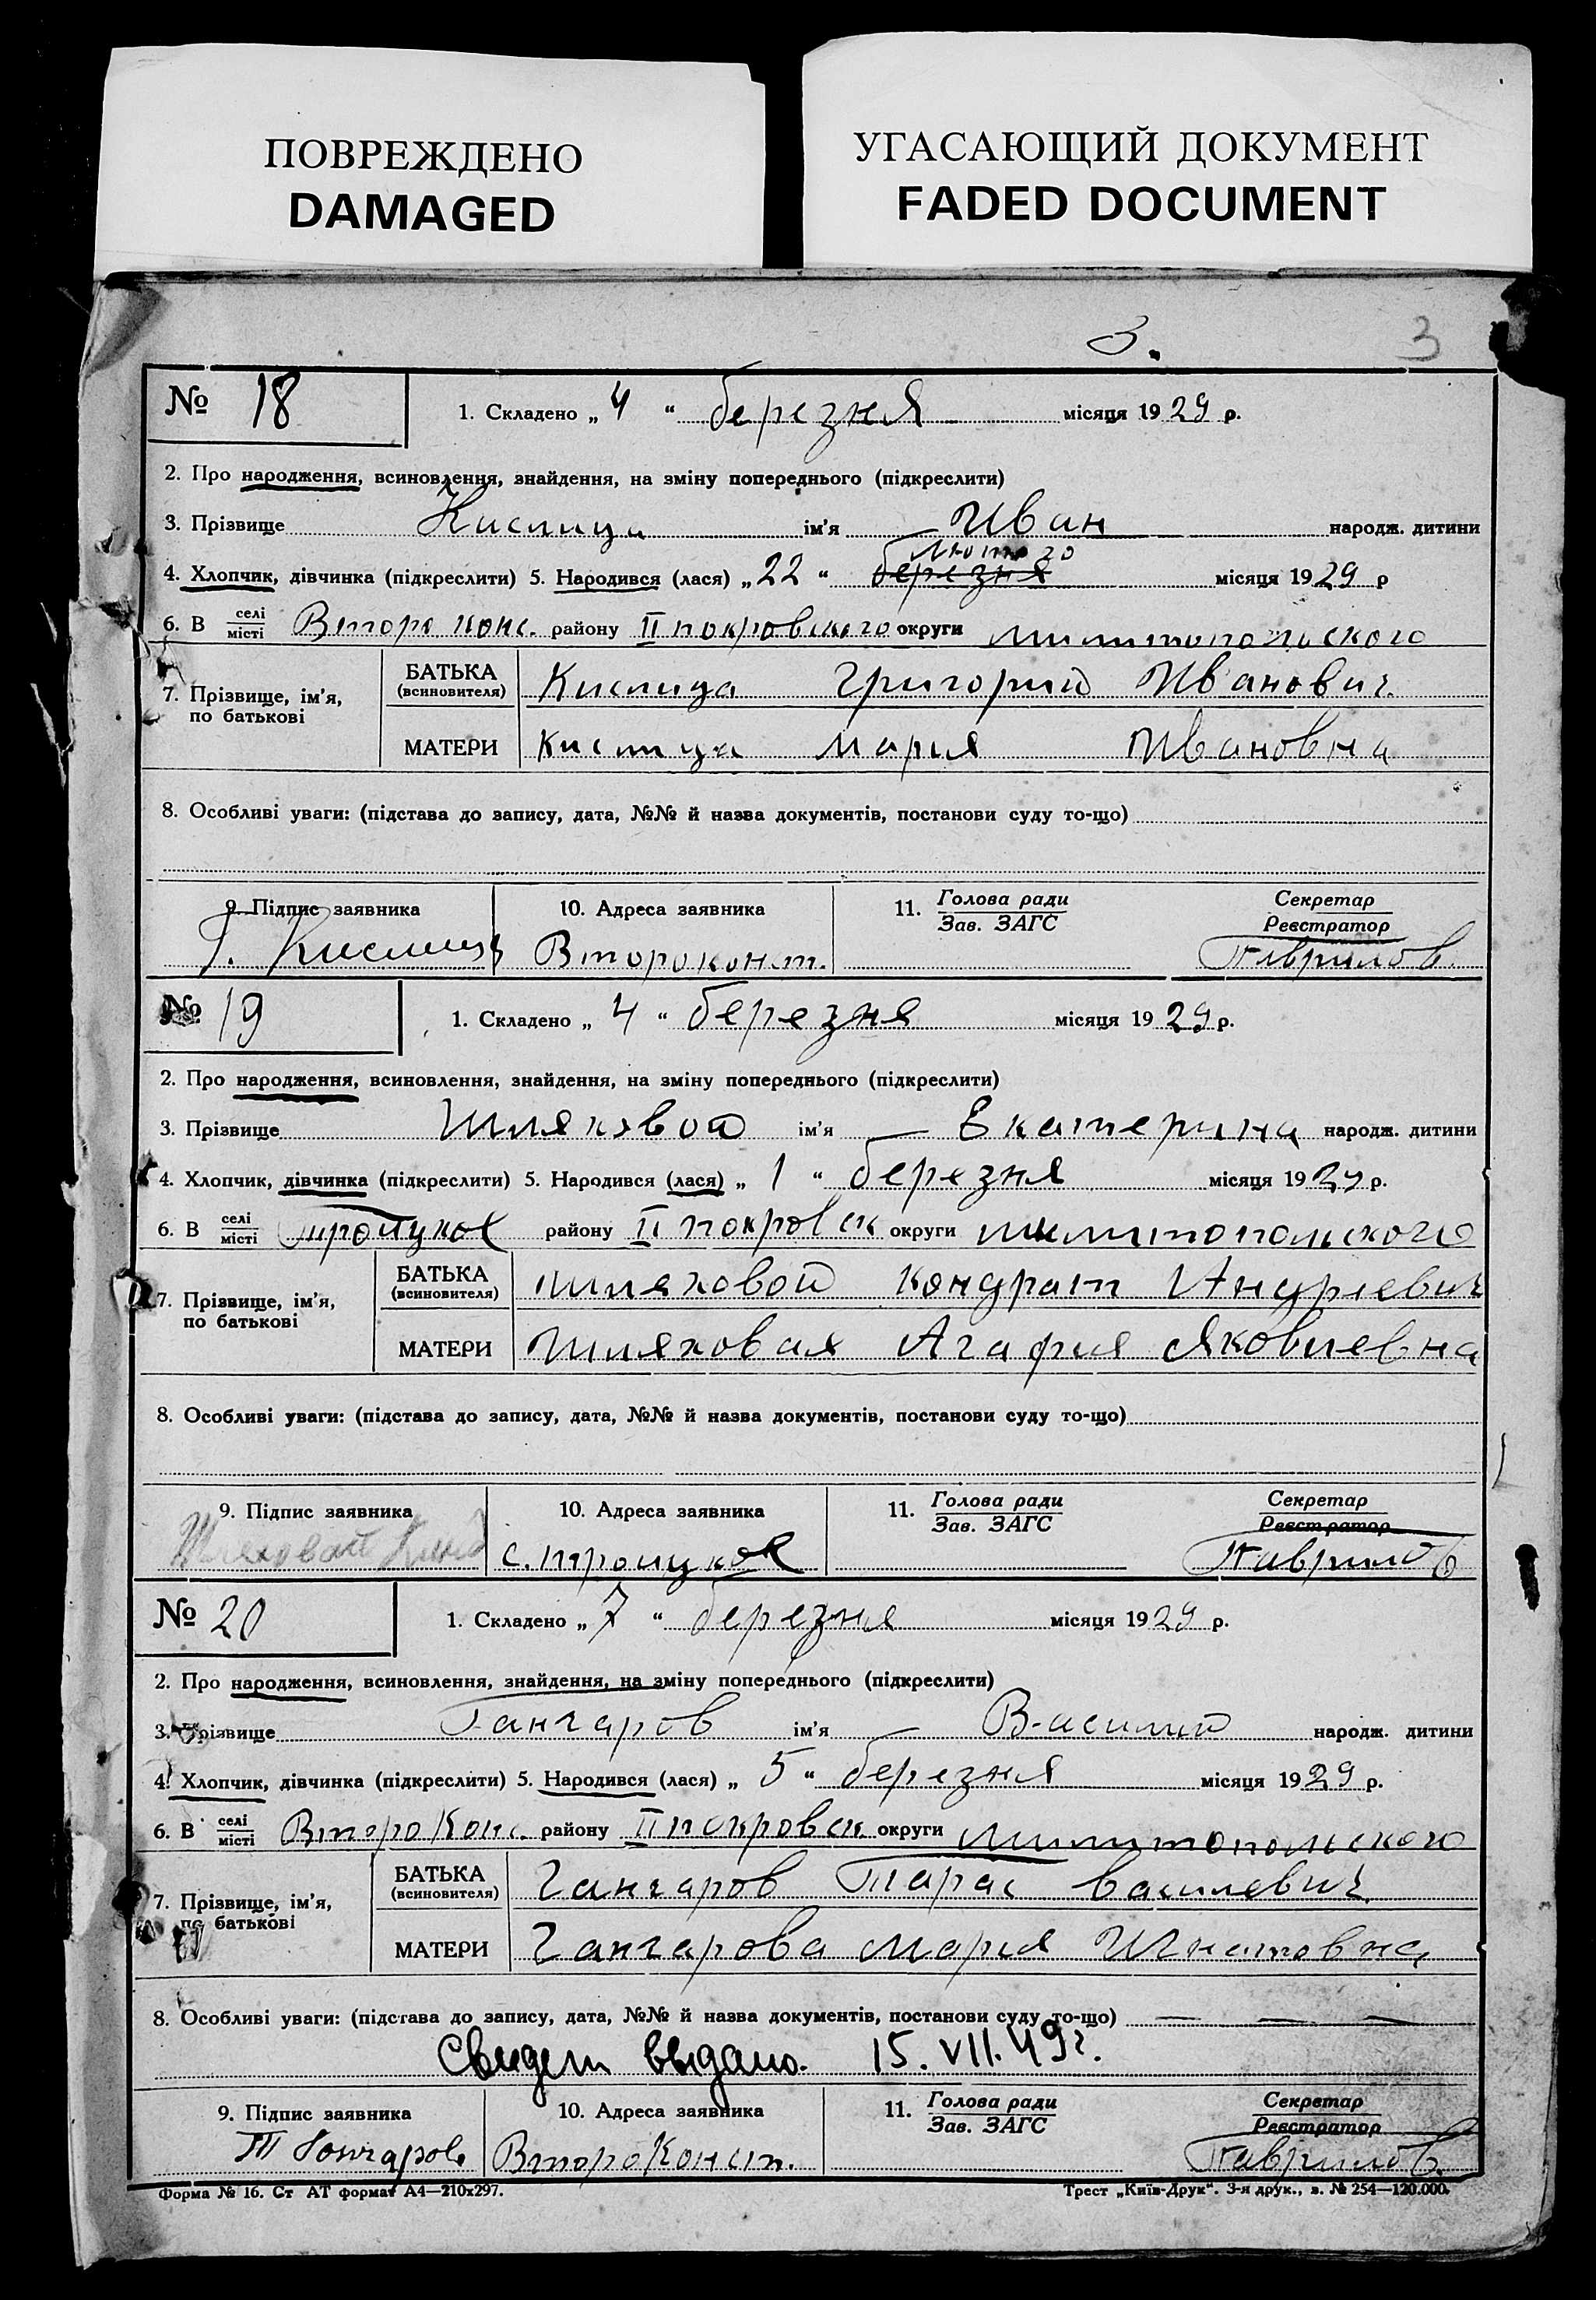 ПОВРЕЖДЕНО
DAMAGED
УГАСАЮЩИЙ ДОКУМЕНТ
FADED DOCUMENT
3. 3
№ 18 1. Складено „ 4 “ березня місяця 1929 р.
2. Про народження, всиновлення, знайдення, на зміну попереднього (підкреслити)
3. Прізвище Кислица ім'я Иван народж. дитини
лютого
4. Хлопчик, дівчинка (підкреслити) 5. Народився (лася) „ 22 “ березня місяця 1929 р
6. В селі/місті Второ конс. району II покровського округи милитопольского
7. Прізвище, ім'я, по батькові
БАТЬКА (всиновителя) Кислица Григорий Иванович
МАТЕРИ Кислица Мария Ивановна
8. Особливі уваги: (підстава до запису, дата, №№ й назва документів, постанови суду то-що)
9. Підпис заявника 10. Адреса заявника 11. Голова ради/Зав. ЗАГС Секретар/Реєстратор
Г. Кислица Второконст. Гаврилов
№ 19 1. Складено „ 4 “ березня місяця 1929 р.
2. Про народження, всиновлення, знайдення, на зміну попереднього (підкреслити)
3. Прізвище Шляховой ім'я Екатерина народж. дитини
4. Хлопчик, дівчинка (підкреслити) 5. Народився (лася) „ 1 “ березня місяця 1929 р.
6. В селі/місті Троицкое району II покровск округи милитопольского
7. Прізвище, ім'я, по батькові
БАТЬКА (всиновителя) Шляховой Кондрат Андриевич
МАТЕРИ Шляховая Агафия Яковлевна
8. Особливі уваги: (підстава до запису, дата, №№ й назва документів, постанови суду то-що)
9. Підпис заявника 10. Адреса заявника 11. Голова ради/Зав. ЗАГС Секретар/Реєстратор
Шляховой с. Троицкое Гаврилов
№ 20 1. Складено „ 7 “ березня місяця 1929 р.
2. Про народження, всиновлення, знайдення, на зміну попереднього (підкреслити)
3. Прізвище Ганчаров ім'я Василий народж. дитини
4. Хлопчик, дівчинка (підкреслити) 5. Народився (лася) „ 5 “ березня місяця 1929 р.
6. В селі/місті Второ Конс. району II покровск. округи милитопольского
7. Прізвище, ім'я, по батькові
БАТЬКА (всиновителя) Ганчаров Тарас Василевич
МАТЕРИ Ганчарова Мария Игнатовна
8. Особливі уваги: (підстава до запису, дата, №№ й назва документів, постанови суду то-що)
Свидет выдано. 15. VII. 49 г.
9. Підпис заявника 10. Адреса заявника 11. Голова ради/Зав. ЗАГС Секретар/Реєстратор
Т Гончаров Второ Конст. Гаврилов
Форма № 16. Ст АТ формат А4—210х297. Трест „Київ-Друк“. 3-я друк., з. № 254—120.000.